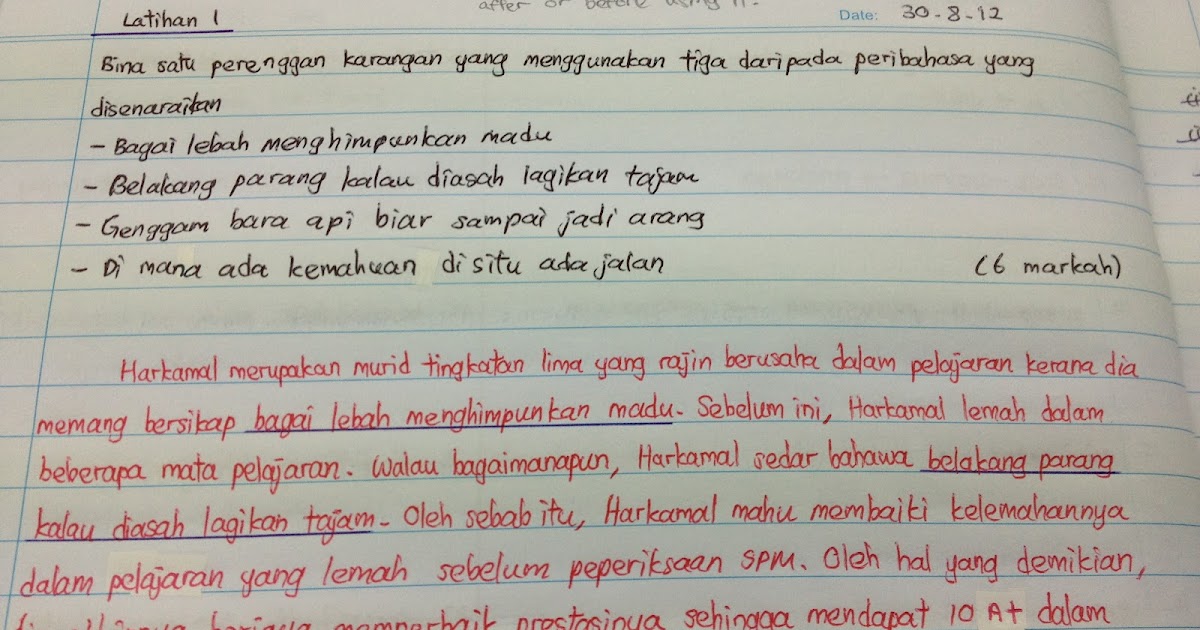 after or before using it.
Latihan 1
Date: 30-8-12
Bina satu perenggan karangan yang menggunakan tiga daripada peribahasa yang
disenaraikan
- Bagai lebah menghimpunkan madu
- Belakang parang kalau diasah lagikan tajam
- Genggam bara api biar sampai jadi arang
- Di mana ada kemahuan di situ ada jalan (6 markah)
Harkamal merupakan murid tingkatan lima yang rajin berusaha dalam pelajaran kerana dia
memang bersikap bagai lebah menghimpunkan madu. Sebelum ini, Harkamal lemah dalam
beberapa mata pelajaran. Walau bagaimanapun, Harkamal sedar bahawa belakang parang
kalau diasah lagikan tajam. Oleh sebab itu, Harkamal mahu membaiki kelemahannya
dalam pelajaran yang lemah sebelum peperiksaan SPM. Oleh hal yang demikian,
memperbaik prestasinya sehingga mendapat 10 A+ dalam